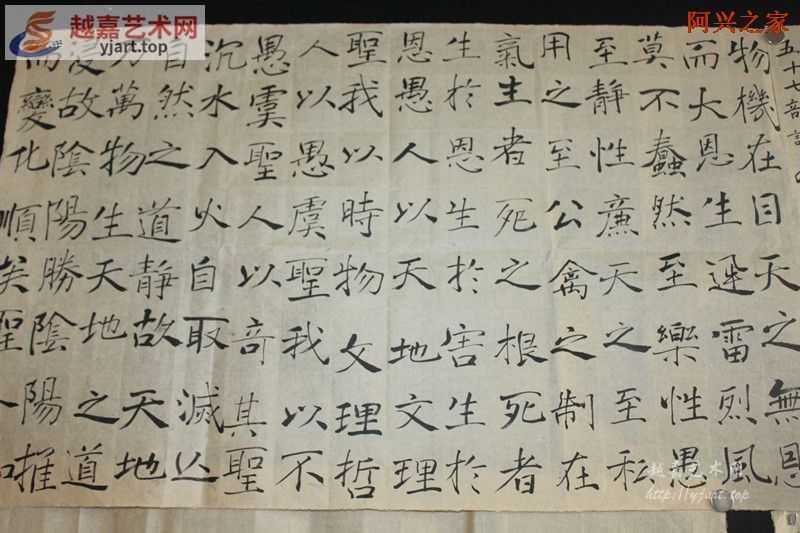 五十七
物機在目天之無恩
而大恩生迅雷烈風
莫不蠢然至樂性愚
至靜性廉天之至私
用之至公禽之制在
氣生者死之根死者
生於恩生於害生於
恩愚人以天地文理
聖我以時物文理哲
人以愚虞聖我以不
愚虞聖人以奇其聖
沉水入火自取滅亡
自然之道靜故天地
萬物生天地之道
浸故陰陽勝陰陽推
而變化順矣聖
越嘉艺术网
yjart.top
阿兴之家
越嘉艺术网
http://yjart.top